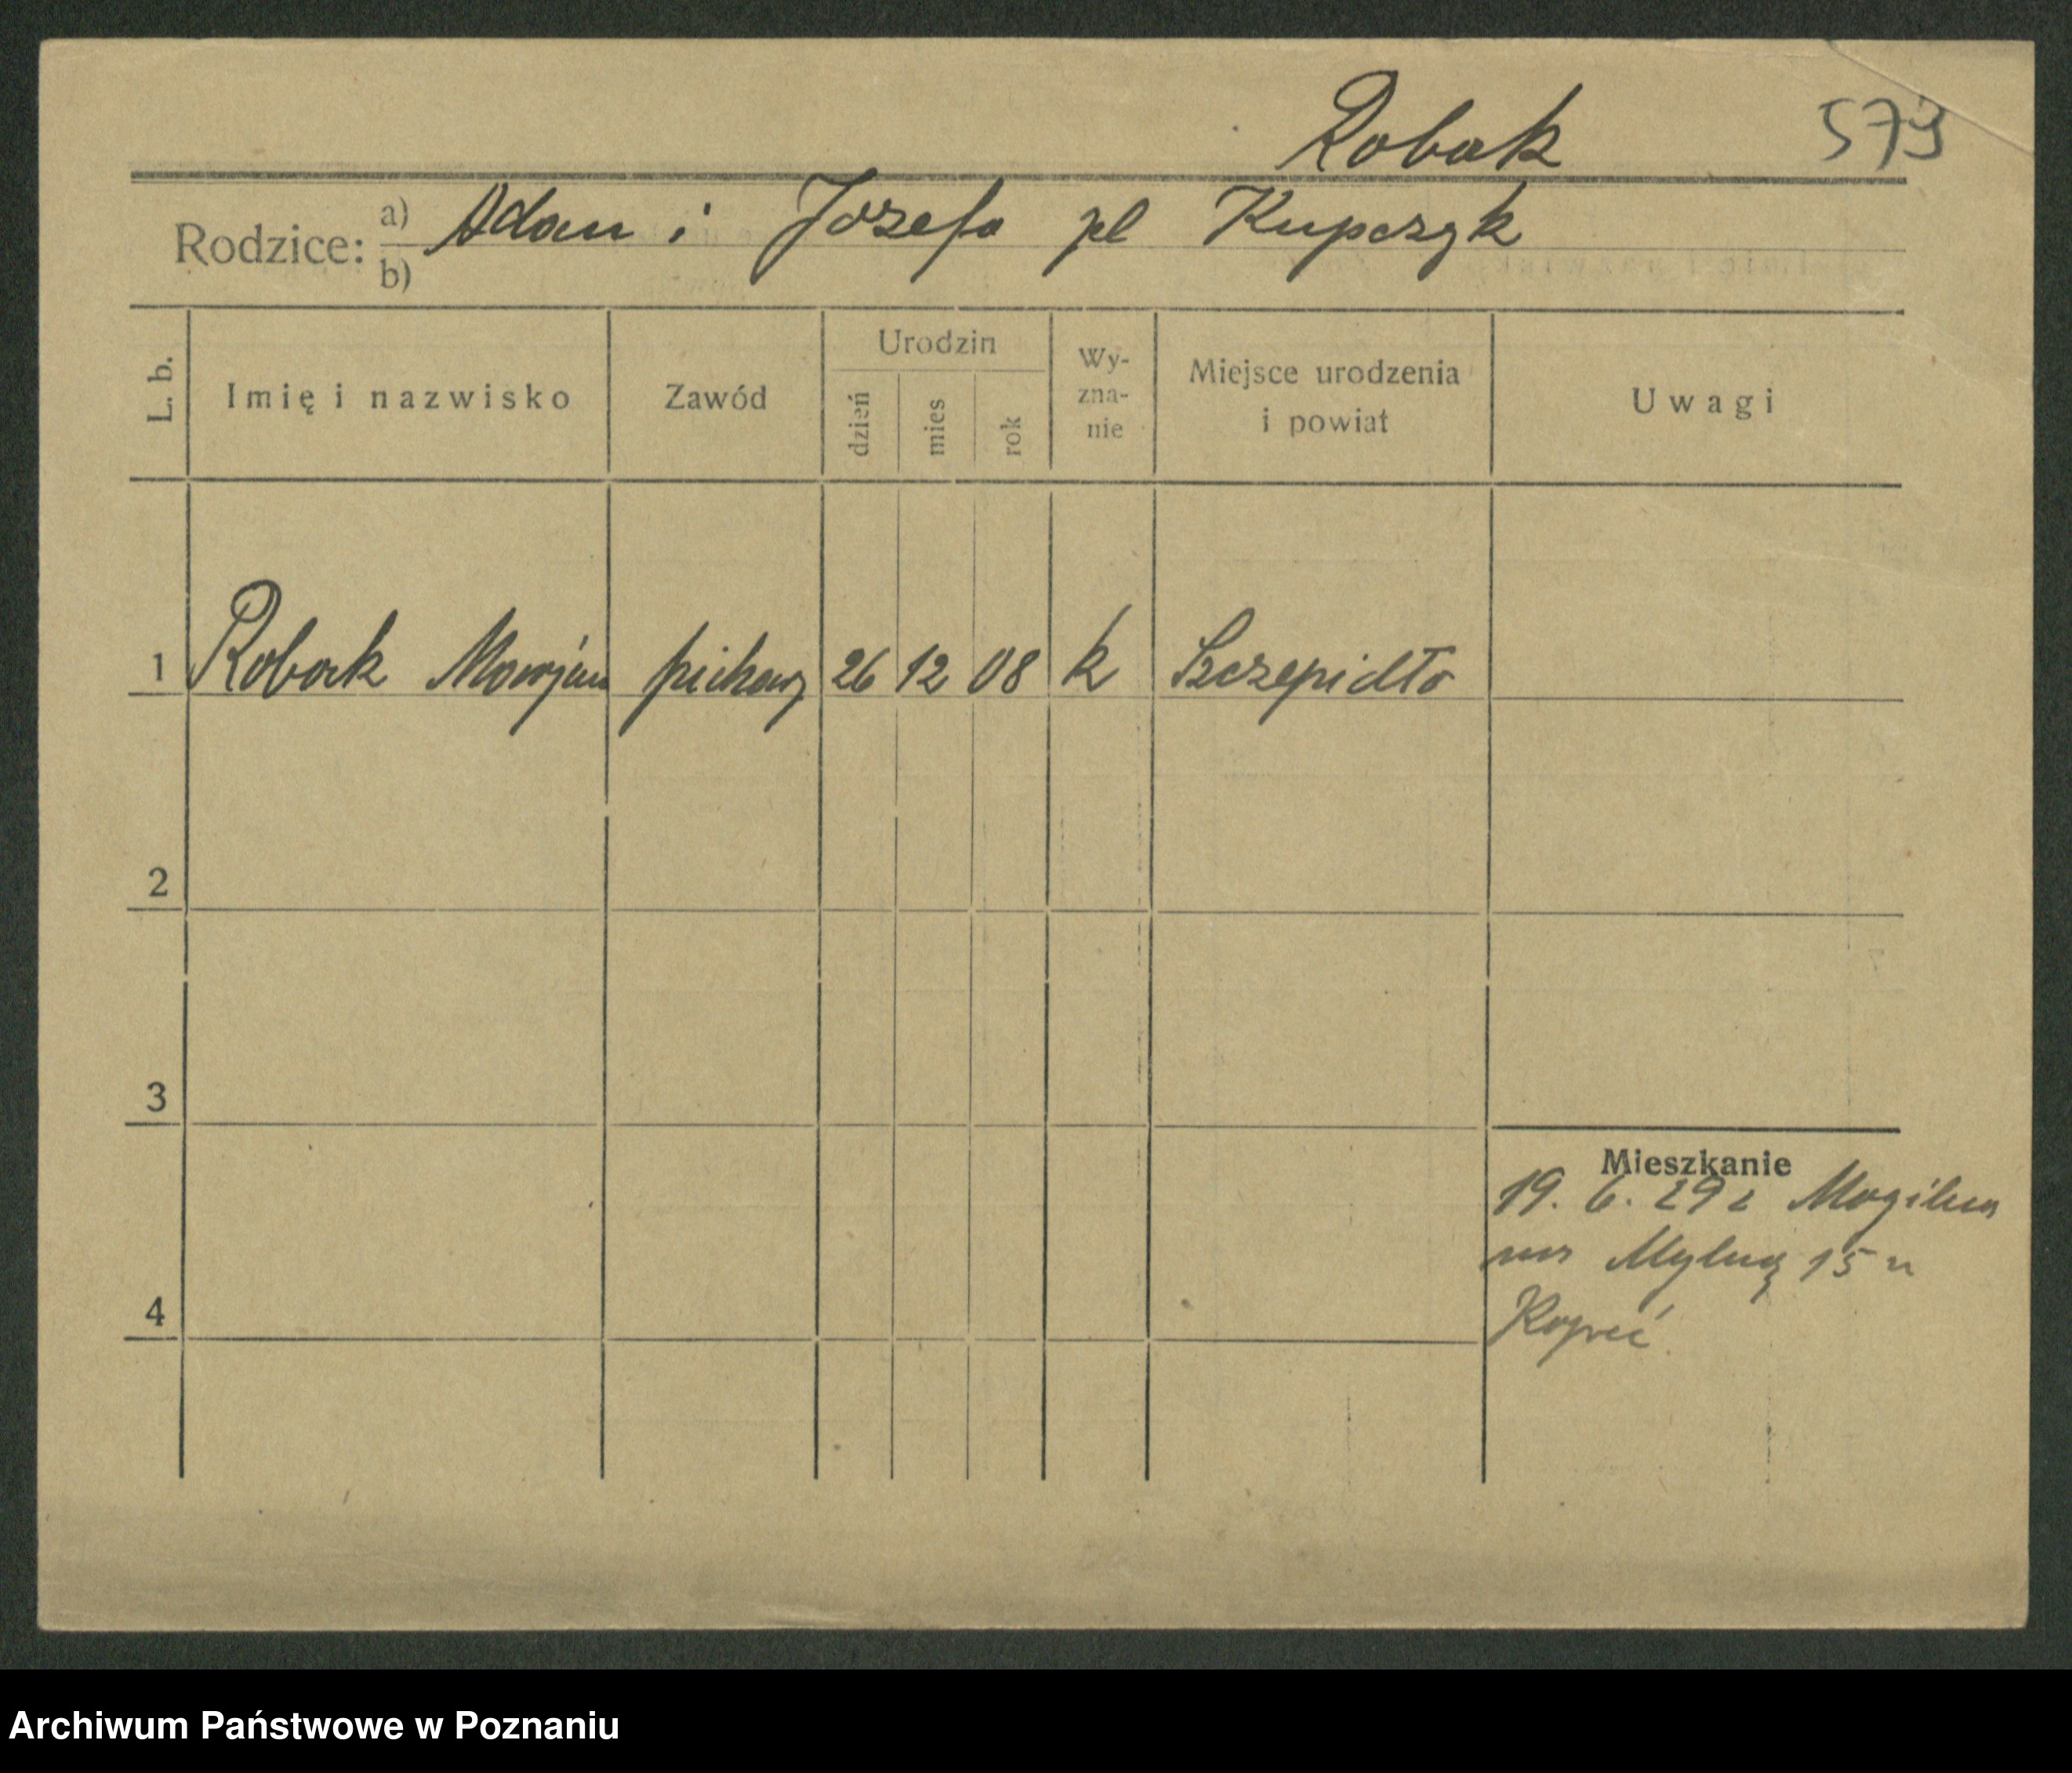 Robak 579
Rodzice: a) Adam i Józefa zd Kupczyk
b)
L. b.
Imię i nazwisko
Zawód
Urodzin
dzień
mies
rok
Wy-
zna-
nie
Miejsce urodzenia
i powiat
Uwagi
1 Robak Marjan piekarz 26 12 08 k Szczepidło
2
3
Mieszkanie
19. 6. 29 z Mogilna
na Mylną 15 u
4
Kopeć
Archiwum Państwowe w Poznaniu